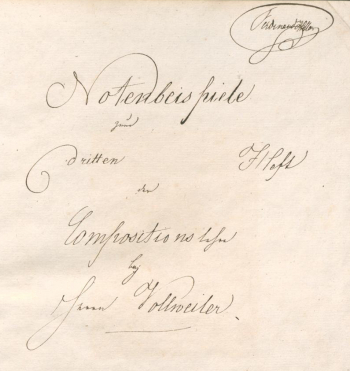 Ferdinand Hiller
Notenbeispiele
zum
dritten Heft
der
Compositionslehre
bey
Herrn Vollweiler.